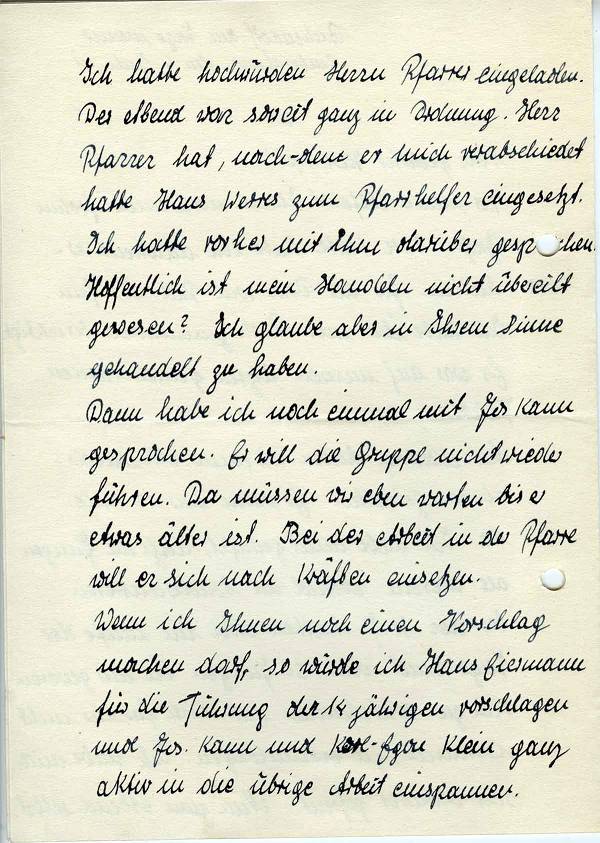 Ich hatte hochwürden Herrn Pfarrer eingeladen.
Der Abend war soweit ganz in Ordnung. Herr
Pfarrer hat, nach-dem er mich verabschiedet
hatte Hans Werres zum Pfarrhelfer eingesetzt.
Ich hatte vorher mit Ihm darüber gesprochen.
Hoffentlich ist mein Handeln nicht übereilt
gewesen? Ich glaube aber in Ihrem Sinne
gehandelt zu haben.
Dann habe ich noch einmal mit Jos Kann
gesprochen. Er will die Gruppe nicht wieder
führen. Da müssen wir eben warten bis er
etwas älter ist. Bei der Arbeit in der Pfarre
will er sich nach Kräften einsetzen.
Wenn ich Ihnen noch einen Vorschlag
machen darf, so würde ich Hans Giesmann
für die Führung der 14 jährigen vorschlagen
und Jos. Kann und Karl-Egon Klein ganz
aktiv in die übrige Arbeit einspannen.